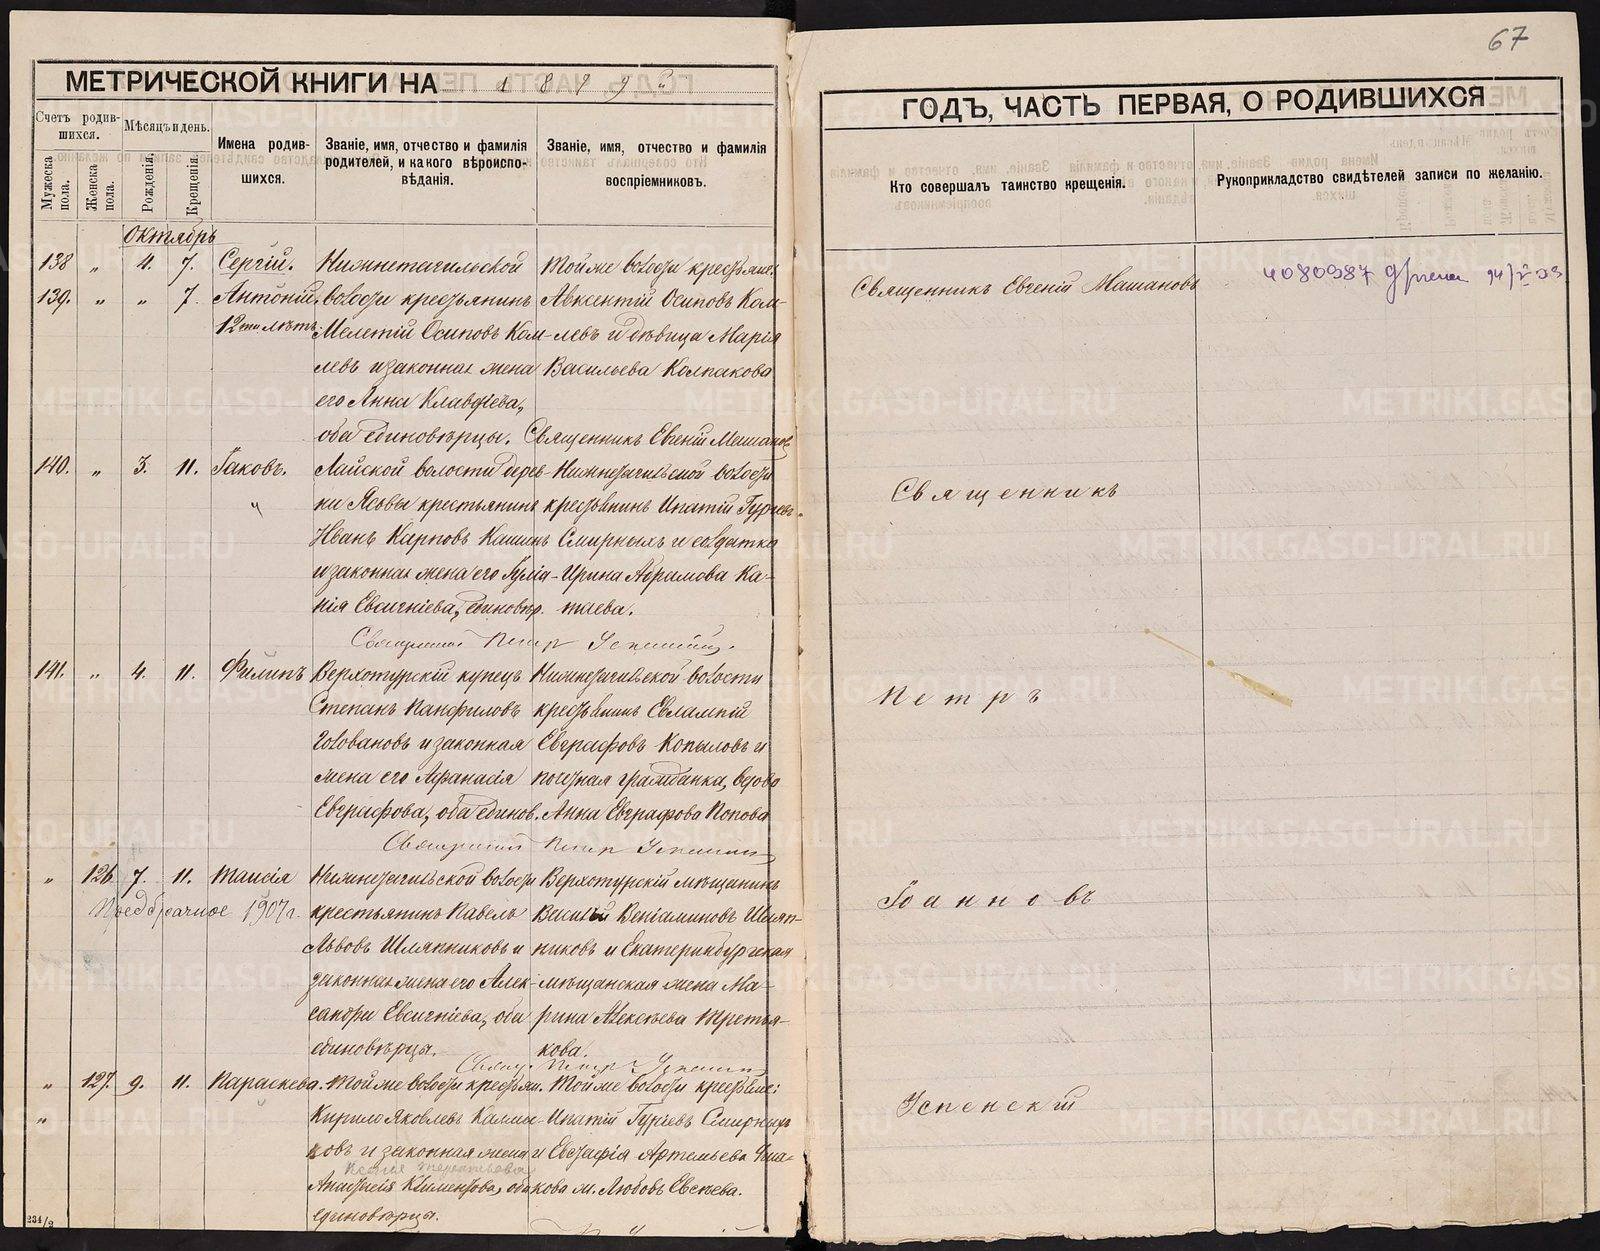 67
МЕТРИЧЕСКОЙ КНИГИ НА 1889й
ГОДЪ, ЧАСТЬ ПЕРВАЯ, О РОДИВШИХСЯ
Счетъ родившихся.
Мужеска пола.
Женска пола.
Мѣсяцъ и день.
Рожденія.
Крещенія.
Имена родившихся.
Званіе, имя, отчество и фамилія родителей, и какого вѣроисповѣданія.
Званіе, имя, отчество и фамилія воспріемниковъ.
Кто совершалъ таинство крещенія.
Рукоприкладство свидѣтелей записи по желанію.
Октябрь
138 " 4. 7. Сергій. Нижнетагильской Тойже волости крестьяне:
139. " " 7. Антоній. волости крестьянинъ Авксентій Осиповъ Ком-
12ти лѣтъ. Мелетій Осиповъ Ком- левъ и дѣвица Марія
левъ и законная жена Васильева Колпакова
его Анна Клавдіева,
оба единовѣрцы. Священникъ Евгеній Машановъ
Священникъ Евгеній Машановъ
140. " 3. 11. Іаковъ. Лайской волости дерев- Нижнетагильской волости
" ки Ясьвы крестьянинъ крестьянинъ Ипатій Гурьевъ
Иванъ Карповъ Кашинъ Смирныхъ и солдатка
и законная жена его Іулiа- Ирина Абрамова Ка-
нія Евсигніева, единовѣр. таева.
Священникъ Петръ Успенскій.
141. " 4. 11. Филипъ Верхотурскій купецъ Нижнетагильской волости
Степанъ Панфиловъ крестьянинъ Евлампій
Головановъ и законная Евграфовъ Копыловъ и
жена его Афанасія почетная гражданка, вдова
Евграфова, оба единов. Анна Евграфова Попова
Священникъ Петръ Успенскій
" 126 7. 11. Таисія Нижнетагильской волости Верхотурскій мѣщанинъ
Предбрачное 1907 г. крестьянинъ Павелъ Василій Веніаминовъ Шляп-
Львовъ Шляпниковъ и никовъ и Екатеринбургская
законная жена его Алек- мѣщанская жена Ма-
сандра Евсигніева, оба рина Алексѣева Третья-
единовѣрцы. кова.
Свящ. Петръ Успенскій
" 127. 9. 11. Параскева. Тойже волости крестьян. Тойже волости крестьяне:
" Кирило Яковлевъ Калмы- Ипатій Гурьевъ Смирныхъ
ковъ и законная жена и Евстафія Артемьева
Анастасія Климентова, оба кова м. Любовь Евсѣева.
единовѣрцы.
Священникъ
Петръ
Іоанновъ
Успенскій
234/2
METRIKI.GASO-URAL.RU